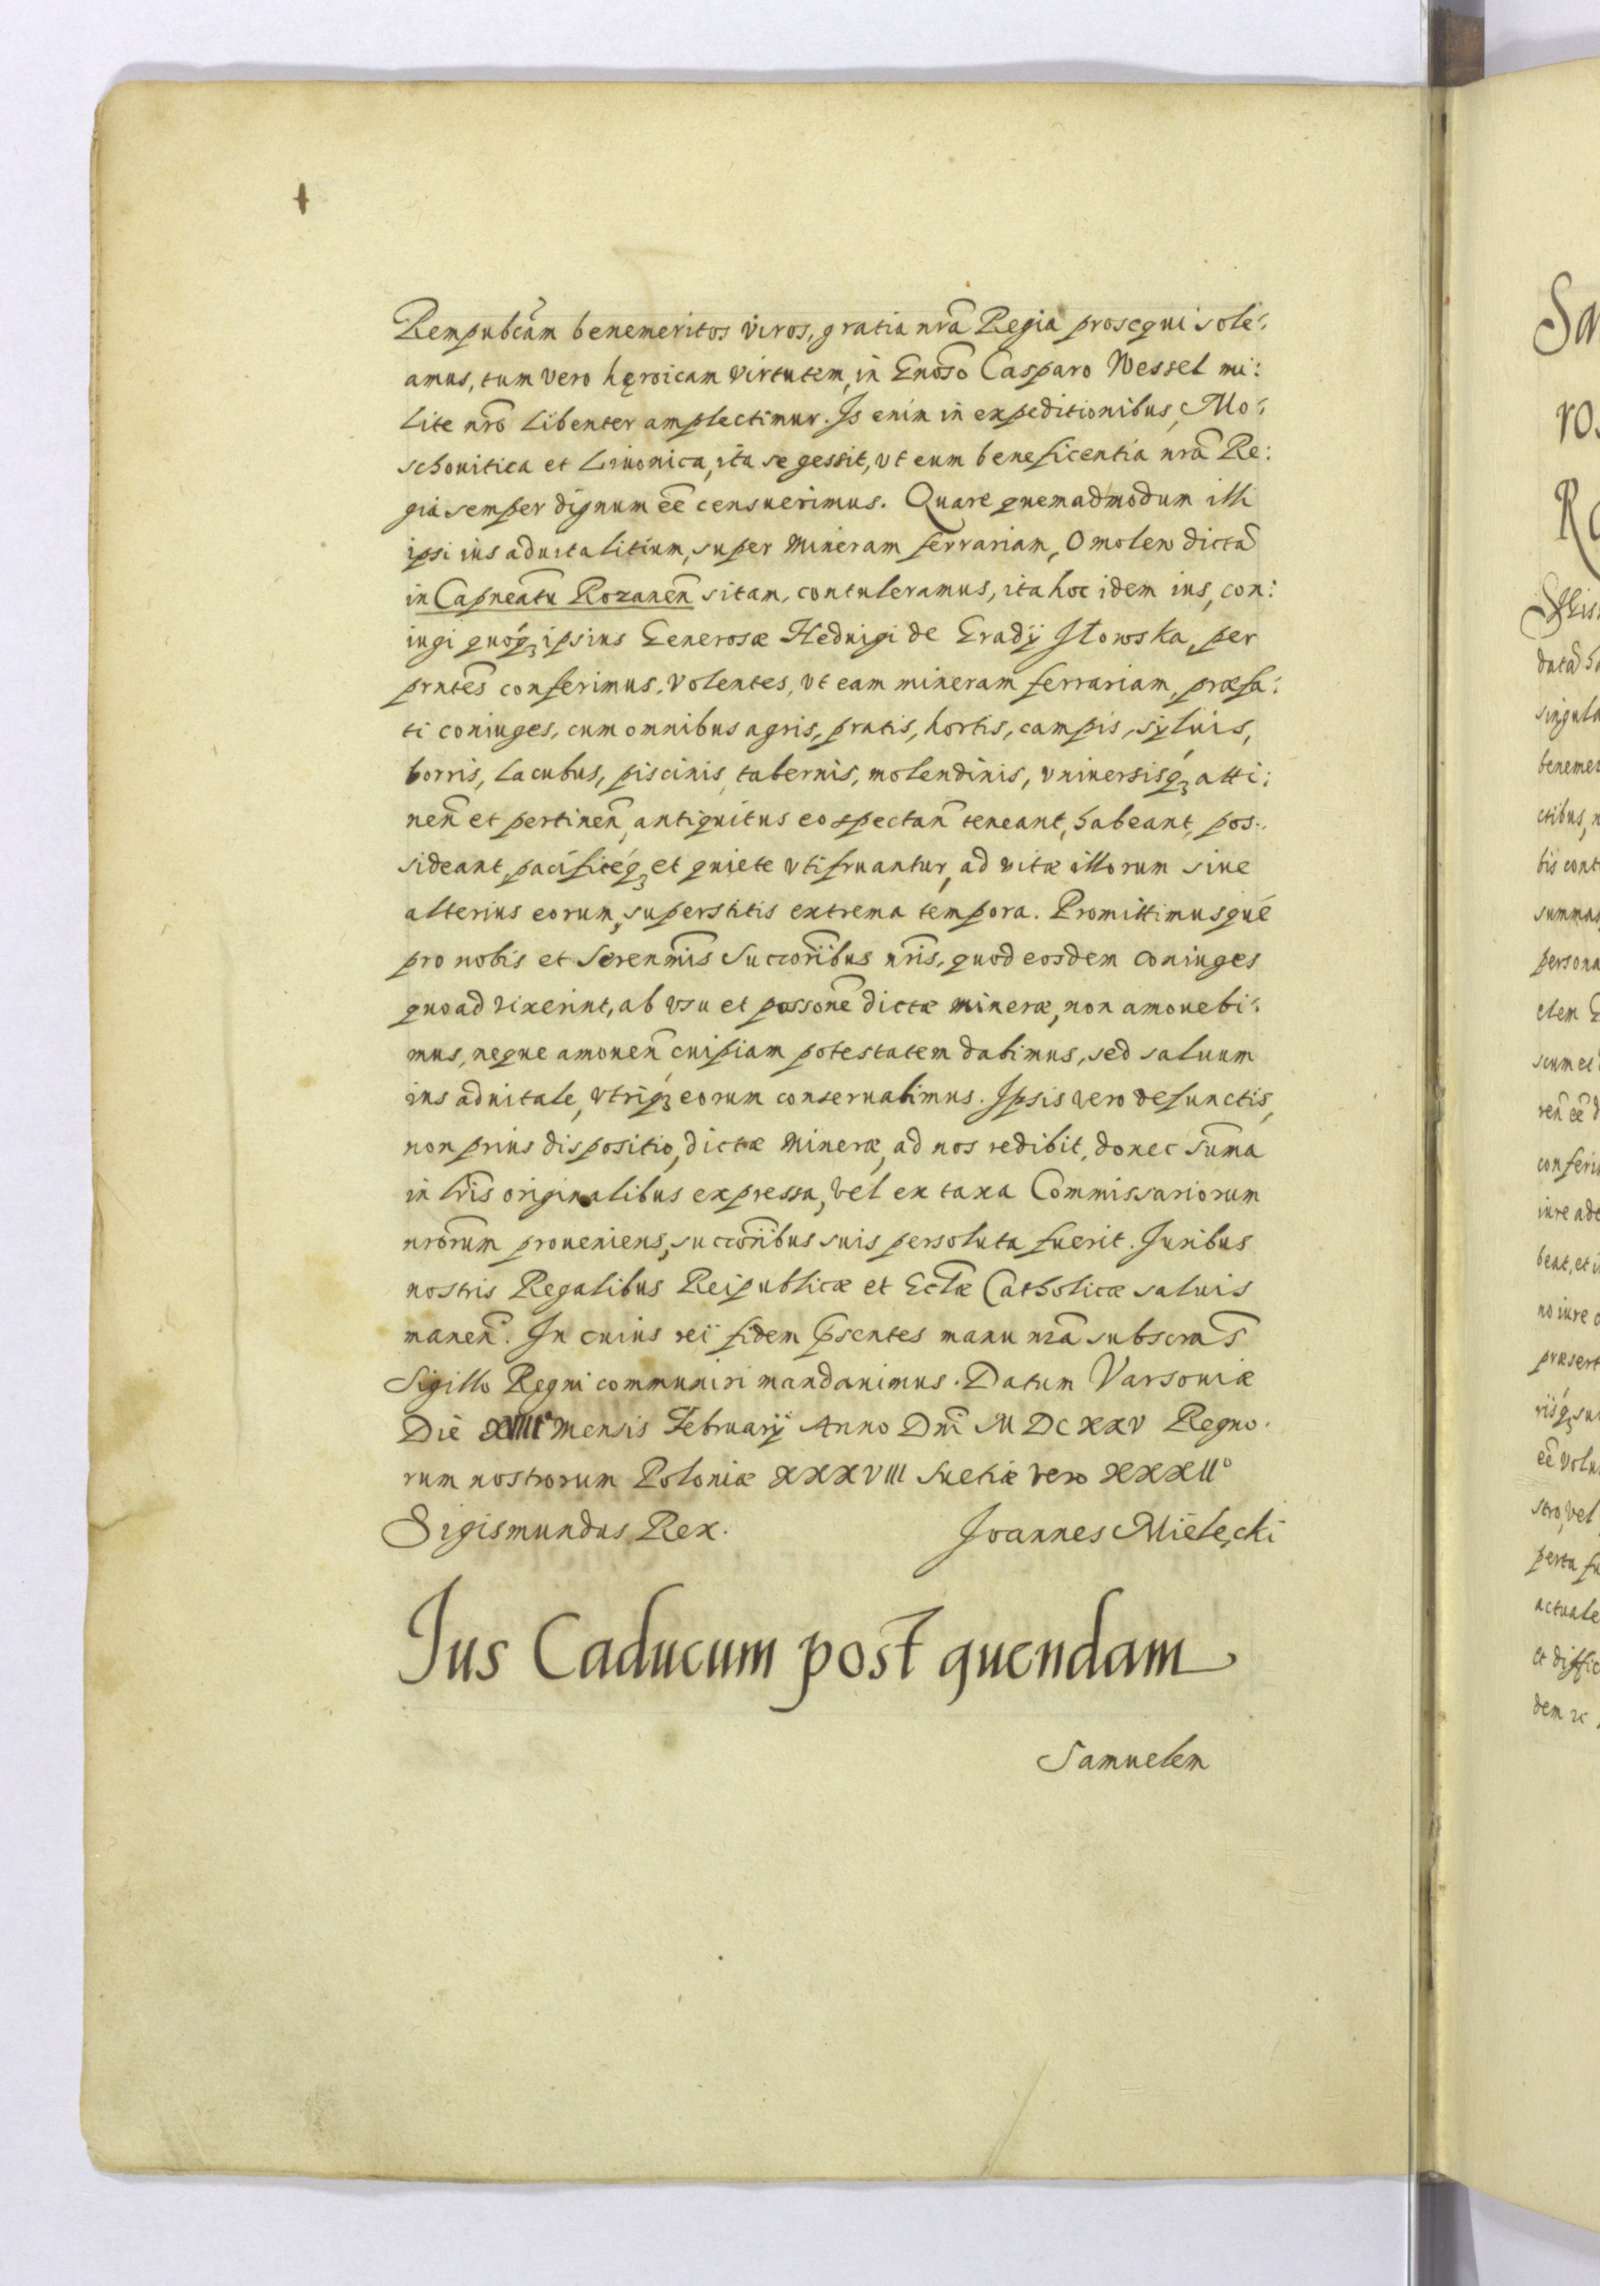 Rempubcãm benemeritos viros, gratia nrã Regia prosequi sole:
amus, tum vero hęroicam virtutem, in Gnoso Casparo Wessel mi:
lite nrõ libenter amplectimur. Is enim in expeditionibus, Mo:
schouitica et Liuonica, ita se gessit, vt eum beneficentia nrã Re:
gia semper dignum eẽ censuerimus. Quare quemadmodum illi
ipsi ius aduitalitium, super mineram ferrariam, Omolew dictã
in Capneatu Rozaneñ sitam, contuleramus, ita hoc idem ius, con:
iugi quoq́ꝫ ipsius Generosæ Heduigi de Gradÿ Iłowska, per
prntẽs conferimus. Volentes, vt eam mineram ferrariam, præfa:
ti coniuges, cum omnibus agris, pratis, hortis, campis, syluis,
borris, lacubus, piscinis, tabernis, molendinis, vniuersisq́ꝫ atti:
neñ et pertineñ, antiquitus eo spectañ teneant, habeant, pos:
sideant, pacificeq́ꝫ et quiete vtifruantur, ad vitæ illorum siue
alterius eorum, superstitis extrema tempora. Promittimusqué
pro nobis et Serenm̃is Succorĩbus nrĩs, quod eosdem coniuges
quoad vixerint, ab vsu et possonẽ dictæ mineræ, non amouebi:
mus, neque amoueñ cuipiam potestatem dabimus, sed saluum
ius aduitale, vtriq́ꝫ eorum conseruabimus. Ipsis vero defunctis,
non prius dispositio, dictæ mineræ, ad nos redibit, donec Sum̃a
in lrĩs originalibus expressa, vel ex taxa Commissariorum
nrõrum proueniens, succorĩbus suis persoluta fuerit. Iuribus
nostris Regalibus Reipublicæ et Eclæ Catholicæ saluis
maneñ. In cuius reï fidem p̃sentes manu nrã subscrãs
Sigillo Regni communiri mandauimus. Datum Varsouiæ
Die mensis Februarÿ Anno Dnĩ MDCXXV Regno.
rum nostrorum Poloniæ XXXVIII Suetiæ vero XXXIIº
Sigismundus Rex. Joannes Mielęcki
Ius Caducum post quendam
Samuelem